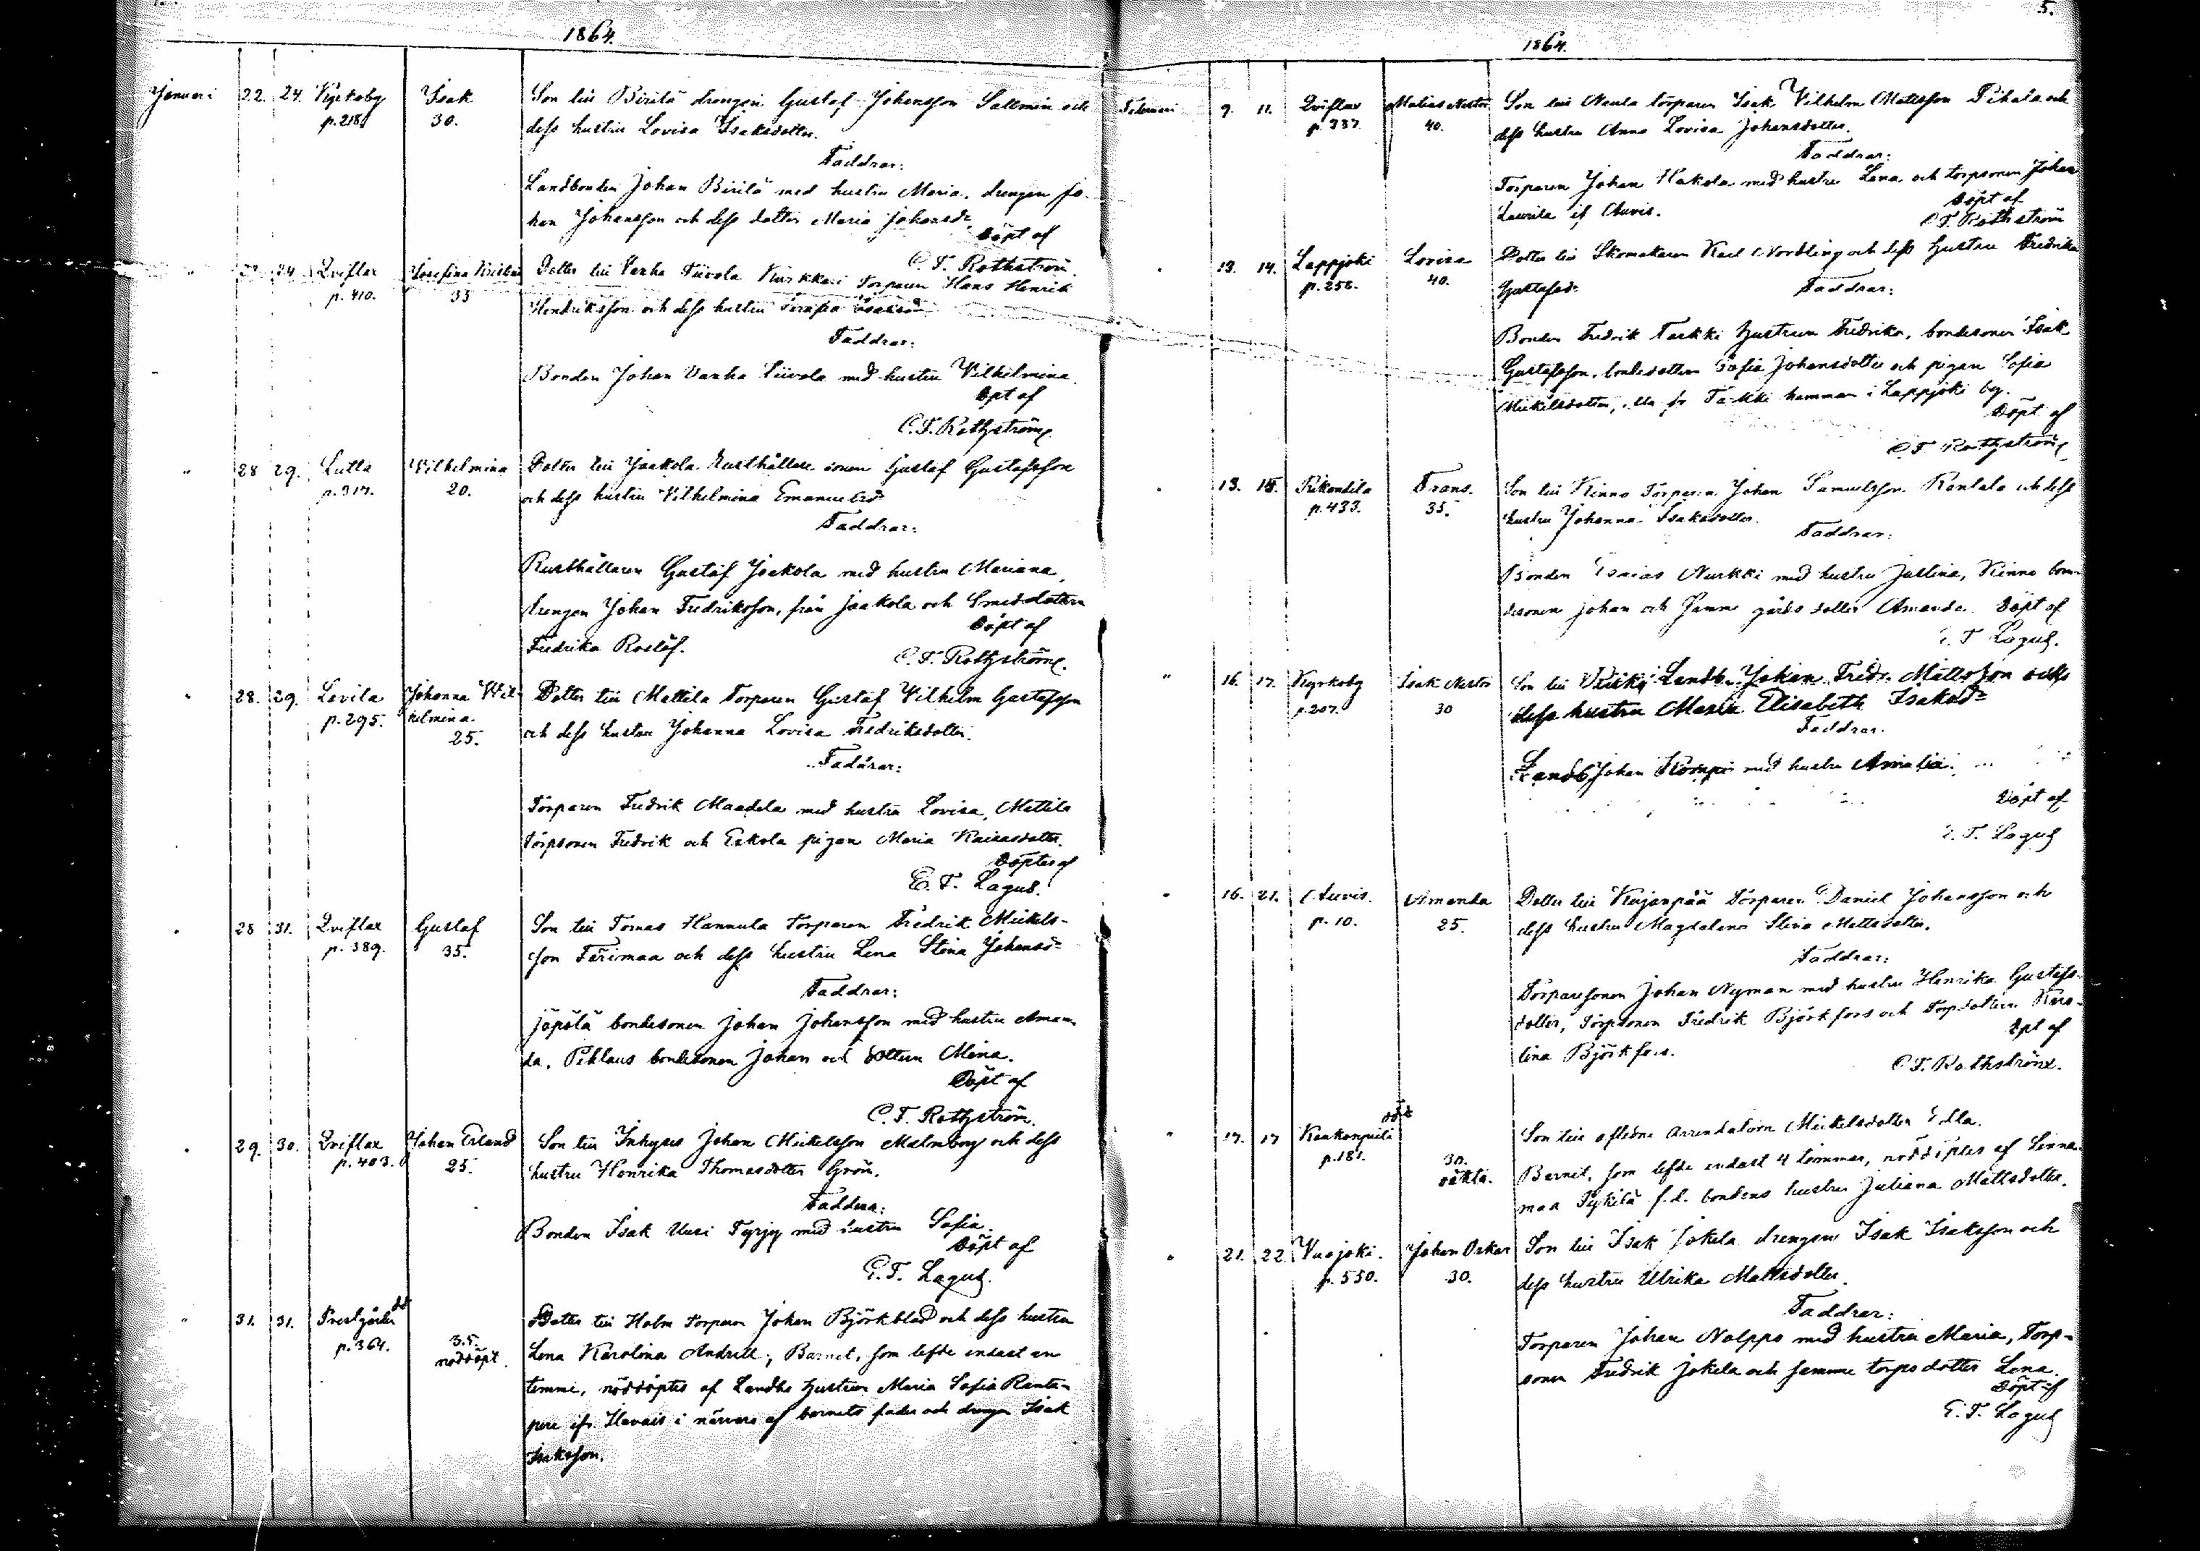 1864.
Januari 22. 24. Kyrkoby Isak Son till Birilä drengen Gustaf Johansson Sallmin och
p. 218 30. dess hustru Lovisa Isaksdotter.
Faddrar:
Landbonden Johan Birilä med hustru Maria, drengen Jo-
han Johansson och dess dotter Maria Johansdr
Döpt af
C. F. Rothström.
" 24. Qviflax Josefina Dotter till Vanha Torparen Hans Henrik
p. 410. 33 Hendriksson och dess hustru
Faddrar:
Bonden Johan Vanha med hustru Vilhelmina
Döpt af
C. F. Rothström.
" 28 29. Lutta Wilhelmina Dotter till Jaakola Rusthållare sonen Gustaf Gustafsson
p. 317. 20. och dess hustru Vilhelmina Emanuelsdr
Faddrar:
Rusthållaren Gustaf Jaakola med hustru Mariana,
drengen Johan Fredriksson, från Jaakola och Smeddottern
Döpt af
Fredrika Roslöf.
C. F. Rothström.
" 28. 29. Lavila Johanna Wil- Dotter till Mattila Torparen Gustaf Vilhelm Gustafsson
p. 295. helmina. och dess hustru Johanna Lovisa Fredriksdotter.
25.
Faddrar:
Torparen Fredrik Maadela med hustru Lovisa, Mattila
torpsonen Fredrik och Eskola pigan Maria
Döptes af
E. F. Lagus.
" 28 31. Qviflax Gustaf Son till Tomas Hannula Torparen Fredrik Mickels-
p. 389. 35. son Ferimaa och dess hustru Lena Stina Johansdr
Faddrar:
Jöpölä bondesonen Johan Johansson med hustru Aman-
da, Pihlaus bondesonen Johan och dottern Mina.
Döpt af
C. F. Rothström.
" 29. 30. Qviflax Johan Erland Son till Inhyses Johan Mickelsson Malmborg och dess
p. 403. 25. hustru Henrika Thomasdotter Grön.
Faddrar:
Bonden Isak Uusi Tyrjy med hustru Sofia.
Döpt af
E. F. Lagus.
" 31. 31. Prestgården Dotter till Holm Torparen Johan Björkblad och dess hustru
p. 364. 35. Lena Karolina Andrell; Barnet, som lefde endast en
nöddöpt. timme, nöddöptes af Landbo hustrun Maria Sofia Ranta-
pere ifr. Havais i närvaro af barnets fader och drengen Isak
Isaksson.
5.
1864.
Februari 9. 11. Qviflax Matias Nestor Son till Naula torparen Isak Vilhelm Mattsson Pihala och
p. 337. 40. dess hustru Anna Lovisa Johansdotter.
Faddrar:
Torparen Johan Hakola med hustru Lena och torpsonen Johan
Laurila if Auvis. Döpt af
C. F. Rothström
" 13. 14. Lappjoki Lovisa Dotter till Skomakaren Karl Nordling och dess hustru Fredrika
p. 258. 40. Gustafsdr Faddrar:
Bonden Fredrik Tarkki hustrun Fredrika, bondesonen Isak
Gustafsson, bondedottern Sofia Johansdotter och pigan Sofia
Mickelsdotter, fr Tarkki hemman i Lappjoki by.
Döpt af
C. F. Rothström
" 13. 15. Frans. Son till Kinno Torparen Johan Samuelsson Rantala och dess
p. 433. 35. hustru Johanna Isaksdotter.
Faddrar:
Bonden Esaias Nurkki med hustru Justina, Kinno bon-
desonen Johan och samma gårds dotter Amanda. Döpt af
E. F. Lagus.
" 16. 17. Kyrkoby Isak Nestor Son till Landb. Johan Fredr. Mattsson och
p. 207. 30 dess hustru Maria Elisabeth Isaksdr
Faddrar.
Landb. Johan med hustru Amalia.
Döpt af
E. F. Lagus
" 16. 21. Auvis. Amanda Dotter till Kujanpää Torparen Daniel Johansson och
p. 10. 25. dess hustru Magdalena Stina Mattsdotter.
Faddrar:
Torparesonen Johan Nyman med hustru Henrika Gustafs-
dotter, torpsonen Fredrik Björkfors och Torpdottern Karo-
lina Björkfors. Döpt af
C. F. Rothström.
" 17. 17 Son till aflidne Mickelsdotter Edla.
p. 181. 30. Barnet, som lefde endast 4 timmar, nöddöptes af Linna-
oäkta. maa f. d. bondens hustru Juliana Mattsdotter.
" 21. 22 Vuojoki. Johan Oskar Son till Isak Jokela drengen Isak Isaksson och
p. 550. 30. dess hustru Ulrika Mattsdotter.
Faddrar:
Torparen Johan Nolppo med hustru Maria, Torp-
sonen Fredrik Jokela och samma torps dotter Lena.
Döpt af
E. F. Lagus